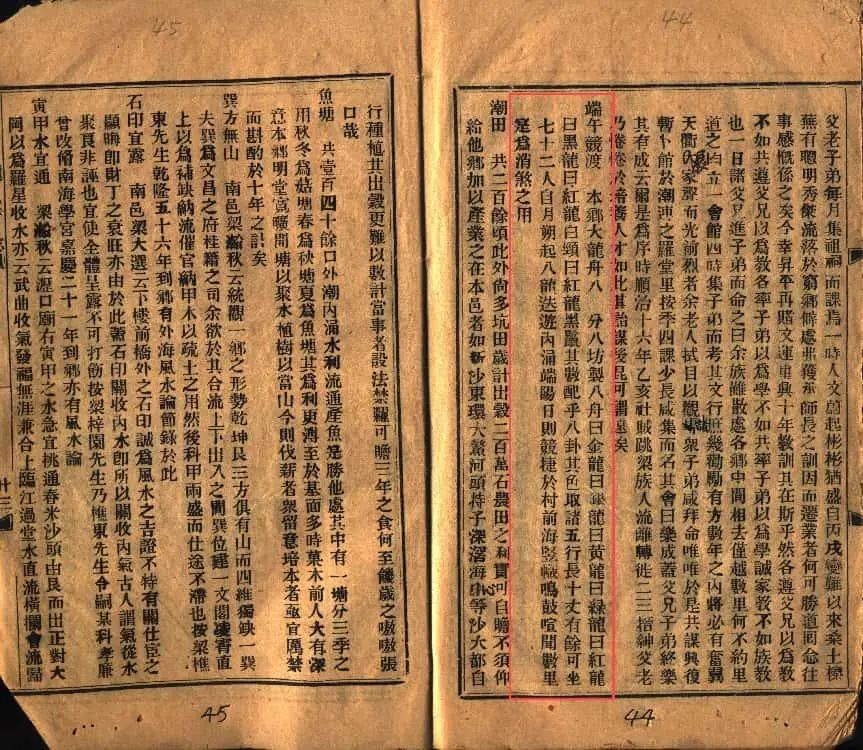 44
父老子弟每月集祖祠而課焉一時人文蔚起彬彬猶盛自丙戌變難以來桑土樑
蕪有聰明秀傑流落於窮鄉僻處弗獲承師長之訓因而遷業者何可勝道囘念往
事感慨係之矣今幸昇平再賭文運重興十年敎訓其在斯乎然各遵父兄以爲敎
不如共遵父兄以爲敎各率子弟以爲學不如共率子弟以爲學誠家敎不如族敎
也一日諸父兄進子弟而命之曰余族雖散處各鄉中間相去僅越數里何不約里
道之均立一會館四時集子弟而考其文行庶幾勸勵有方數年之內將必有奮翼
天衢大家聲布光前烈者余老人拭目以觀衆子弟咸拜命唯唯於是共謀興復
卜館於潮連之羅堂里按季四課少長咸集而名其會曰樂成蓋父兄子弟終樂
其有成云爾是爲序時順治十六年乙亥社賊跳梁族人流離轉徙二三搢紳父老
乃惓惓於培養人才如此其貽謀後昆可謂遠矣
端午競渡 本鄉大龍舟八 分八坊製八舟曰金龍曰銀龍曰黃龍曰綠龍曰紅龍
曰黑龍曰紅龍白頸曰紅龍黑鬣其數配乎八卦其色取諸五行長十丈有餘可坐
七十二人自月朔起八龍迭遊內涌端陽日則競捷於村前海竪幟鳴鼓喧聞數里
寔爲消煞之用
潮田 共二百餘頃此外尙多坑田歲計出穀二百萬石農田之利實可自贍不須仰
給他鄉加以產業之在本邑者如新沙東環大鰲河頭持子深滘海中等沙大都自
44
45
行種植其出穀更難以數計當事者設法禁羅可贍三年之食何至饑歲之嗷嗷張
口哉
魚塘 共壹百四十餘口外潮內涌水利流通產魚寔勝他處其中有一塘分三季之
用秋冬爲菇塘春爲秧塘夏爲魚塘其爲利更溥至於基面多時菓木前人大有深
意本鄉明堂寬曠開塘以聚水植樹以當山今則伐薪者衆留意培本者亟宜厲禁
而斟酌於十年之計矣
巽方無山 南邑梁瀚秋云統觀一鄉之形勢乾坤艮三方俱有山而四維獨缺一巽
夫巽爲文昌之府桂籍之司余欲於其合流上下出入之間巽位建一文閣凌霄直
上以爲補缺納流催官納甲木以疏土之用然後科甲兩盛而仕途不滯也按梁樵
東先生乾隆五十六年到鄉有外海風水論節錄於此
石印宜露 南邑梁大選云下樓前橋外之石印誠爲風水之吉證不特有關仕宦之
顯晦卽財丁之衰旺亦由於此蓋石印關收內水卽所以關收內氣古人謂氣從水
聚良非誣也宜使全體呈露不可打飭按梁梓園先生乃樵東先生令嗣某科孝廉
曾改脩南海學宮嘉慶二十一年到鄉亦有風水論
寅甲水宜通 梁瀚秋云瀝口廟右寅甲之水急宜挑通春米沙頭由艮而出正對大
岡以爲羅星收水亦云武曲收氣發福無涯兼合上臨江過堂水直流橫攔會流歸
廿三
45